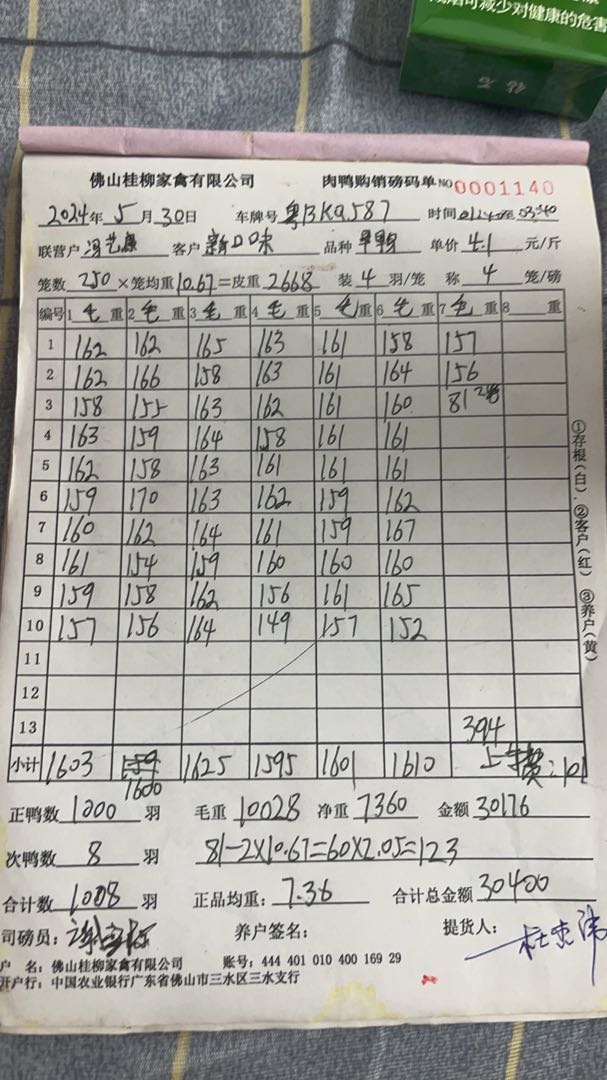 减烟可减少对健康的危害
钻石
佛山桂柳家禽有限公司 肉鸭购销磅码单 NO 0001140
2024年 5月 30日 车牌号 粤BK9587 时间
联营户 冯艺康 客户 新口味 品种 单价 4.1 元/斤
笼数 250 ×笼均重 10.67 =皮重 2668 装 4 羽/笼 称 4 笼/磅
编号 1 毛 重 2 毛 重 3 毛 重 4 毛 重 5 毛 重 6 毛 重 7 毛 重 8 重
1 162 162 165 163 161 158 157
2 162 166 158 163 161 164 156
3 158 155 163 162 161 160 81 2笼
4 163 159 164 158 161 161
5 162 158 163 161 161 161
6 159 170 163 162 159 162
7 160 162 164 161 159 167
8 161 154 159 160 160 160
9 159 158 162 156 161 165
10 157 156 164 149 157 152
11
12
13 394
小计 1603 159 1625 1595 1601 1610 上车费:101
1600
正鸭数 1000 羽 毛重 10028 净重 7360 金额 30176
次鸭数 8 羽 81-2×10.67=60×2.05=123
合计数 1008 羽 正品均重: 7.36 合计总金额 30400
司磅员: 养户签名: 提货人: 杜杰伟
户 名: 佛山桂柳家禽有限公司 账号: 444 401 010 400 169 29
开户行: 中国农业银行广东省佛山市三水区三水支行
①存根(白) ②客户(红) ③养户(黄)